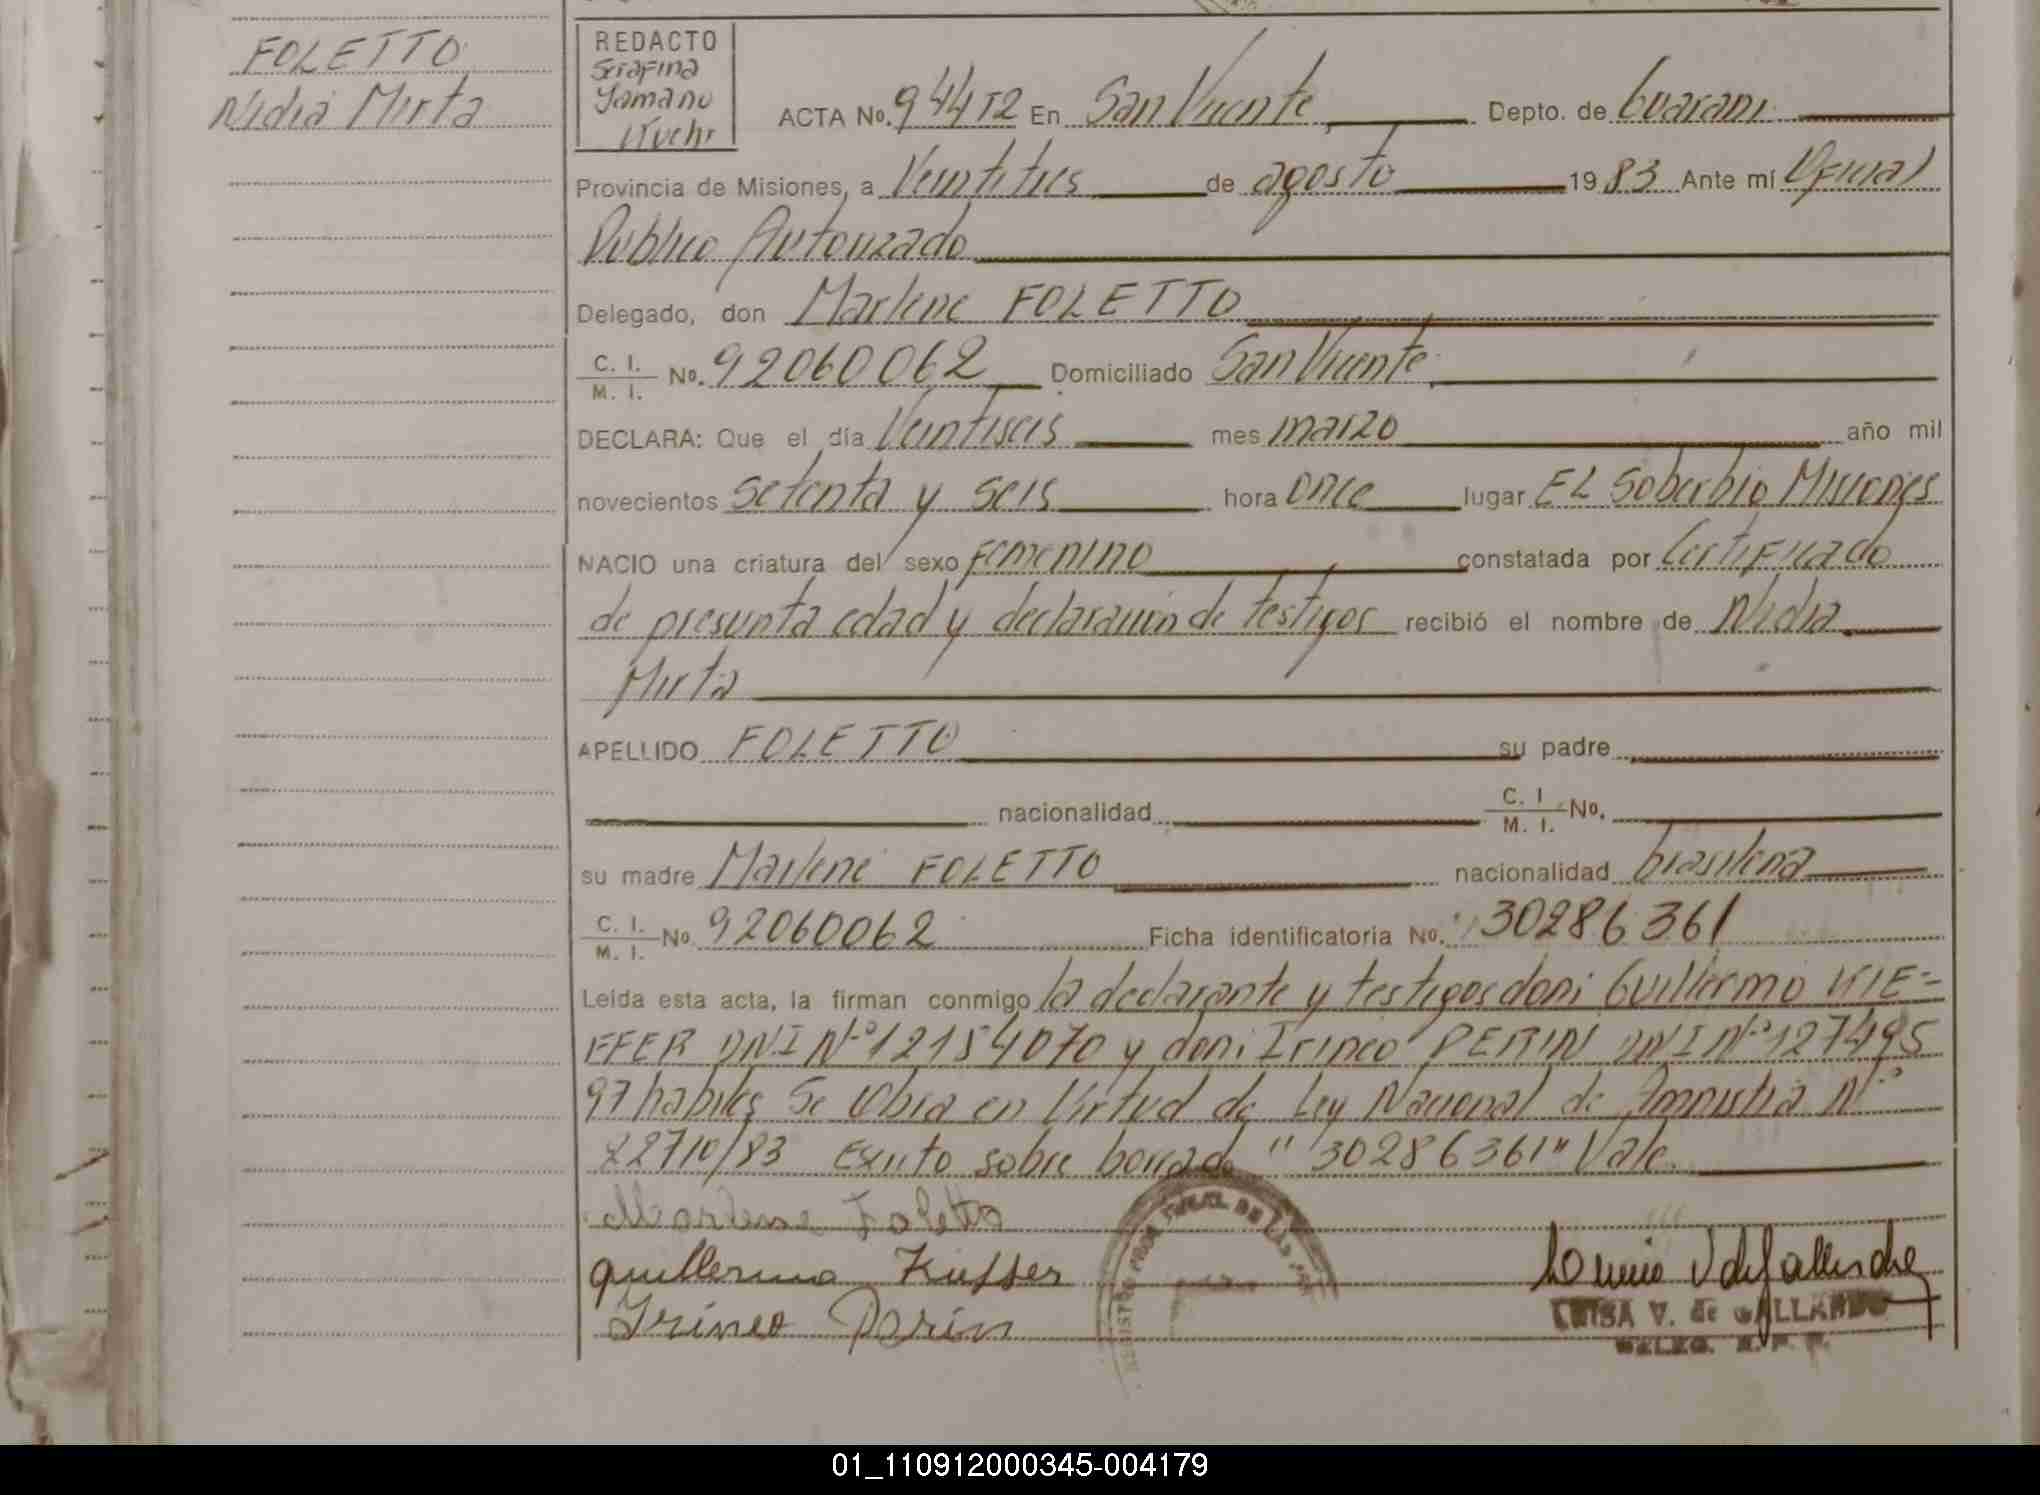 FOLETTO
Nidia Mirta
REDACTO
Serafina
Yamano
Kuehr
ACTA No. 944 T2 En San Vicente Depto. de Guaraní
Provincia de Misiones, a Veintitres de agosto 1983 Ante mí Oficial
Publico Autorizado
Delegado, don Marlene FOLETTO
C. I. M. I. No. 92060062 Domiciliado San Vicente
DECLARA: Que el día Veintiseis mes marzo año mil
novecientos setenta y seis hora once lugar EL Soberbio Misiones
NACIO una criatura del sexo femenino constatada por Certificado
de presunta edad y declaración de testigos recibió el nombre de Nidia
Mirta
APELLIDO FOLETTO su padre
nacionalidad C. I. M. I. No.
su madre Marlene FOLETTO nacionalidad brasilena
C. I. M. I. No. 92060062 Ficha identificatoria No. 30286361
Leida esta acta, la firman conmigo la declarante y testigos don: Guillermo KIE-
FFER DNI Nº 12154070 y don: Irineo PERIN DNI Nº 127495
97 habiles Se Obra en Virtud de Ley Nacional de Amnistia Nº
22710/83 Escrito sobre borrado "30286361" Vale.
Marlene Foletto
Guillermo Kieffer
Irineo Perin
LUISA V. de GALLARDO